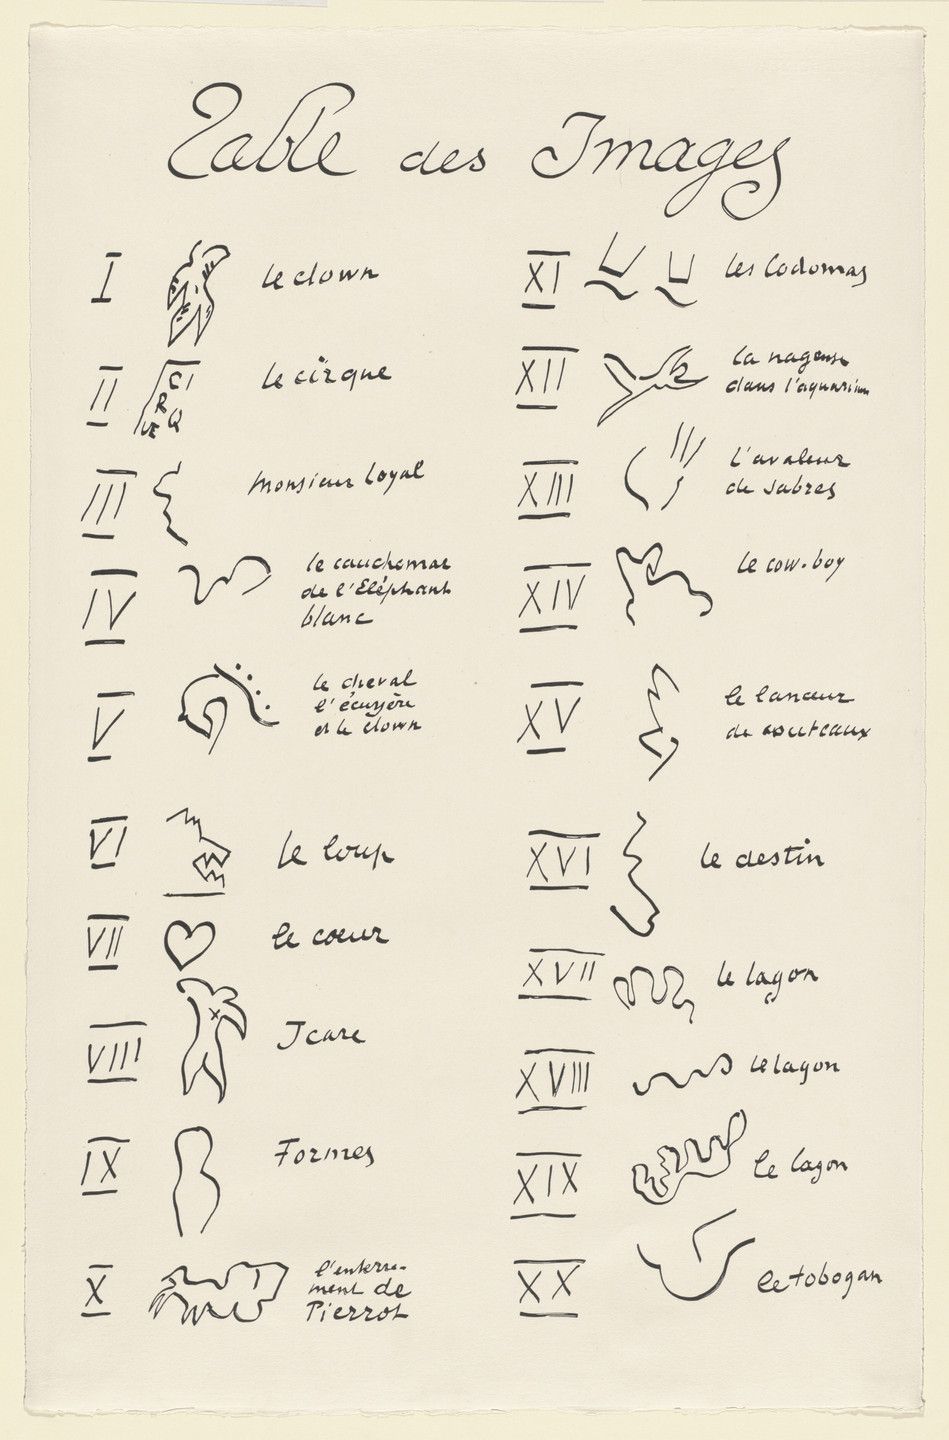 Table des Images
I le clown
II CI
R
VE Q
le cirque
III Monsieur Loyal
IV le cauchemar
de l'Eléphant
blanc
V le cheval
l'écuyère
et le clown
VI le loup
VII le coeur
VIII Icare
IX Formes
X l'enterre-
ment de
Pierrot
XI les Codomas
XII la nageuse
dans l'aquarium
XIII l'avaleur
de sabres
XIV le cow-boy
XV le lanceur
de couteaux
XVI le destin
XVII le lagon
XVIII le lagon
XIX le lagon
XX le tobogan